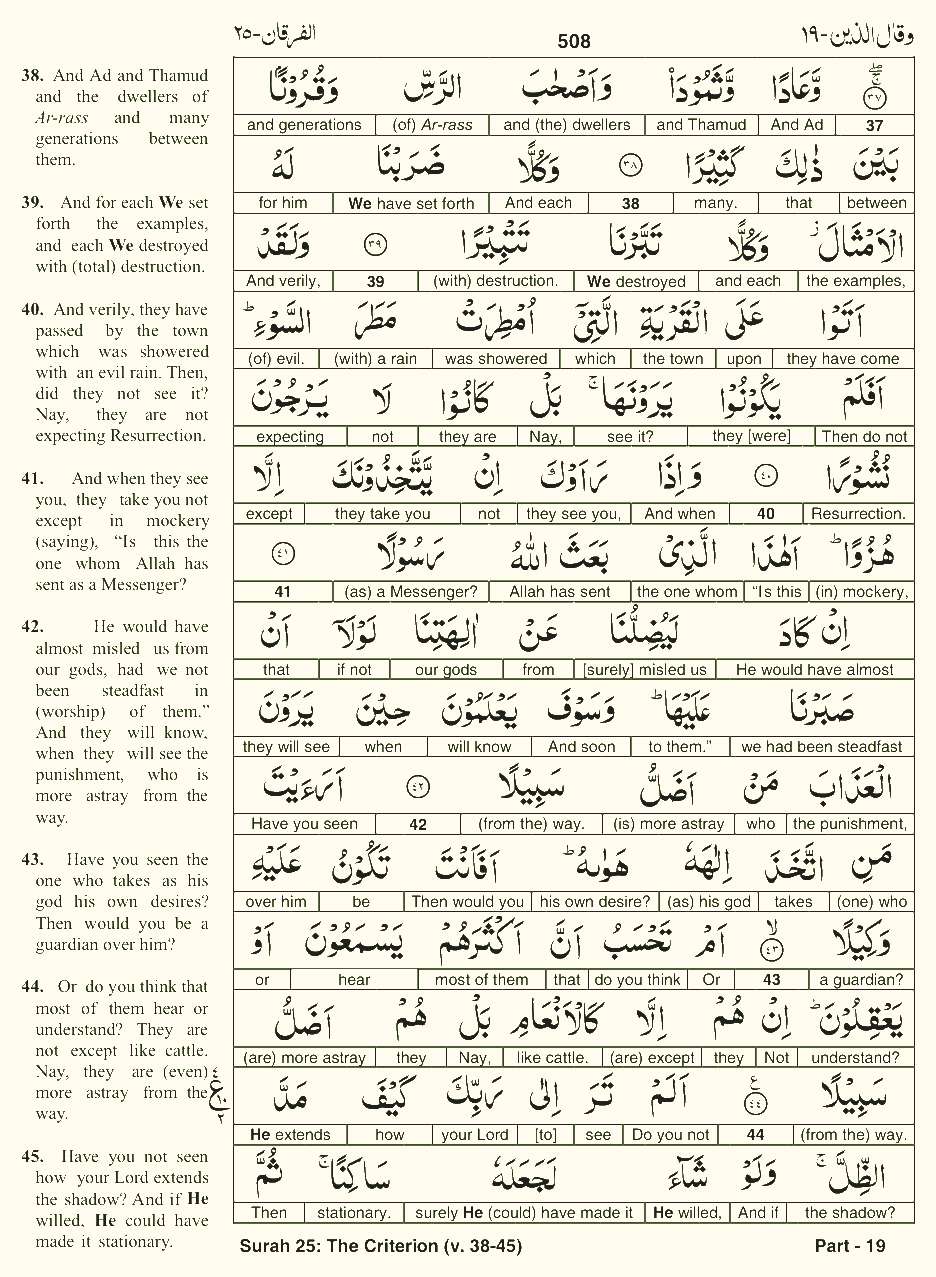 وقال الذين-١٩ 508 الفرقان-٢٥
38. And Ad and Thamud
and the dwellers of
Ar-rass and many
generations between
them.
39. And for each We set
forth the examples,
and each We destroyed
with (total) destruction.
40. And verily, they have
passed by the town
which was showered
with an evil rain. Then,
did they not see it?
Nay, they are not
expecting Resurrection.
41. And when they see
you, they take you not
except in mockery
(saying), “Is this the
one whom Allah has
sent as a Messenger?
42. He would have
almost misled us from
our gods, had we not
been steadfast in
(worship) of them.”
And they will know,
when they will see the
punishment, who is
more astray from the
way.
43. Have you seen the
one who takes as his
god his own desires?
Then would you be a
guardian over him?
44. Or do you think that
most of them hear or
understand? They are
not except like cattle.
Nay, they are (even)
more astray from the
way.
45. Have you not seen
how your Lord extends
the shadow? And if He
willed, He could have
made it stationary.
٣٧ وَّعَادًا وَّثَمُودَا۟ وَاَصْحٰبَ الرَّسِّ وَقُرُوْنًۢا
and generations (of) Ar-rass and (the) dwellers and Thamud And Ad 37
بَيْنَ ذٰلِكَ كَثِيْرًا ٣٨ وَكُلًّا ضَرَبْنَا لَهُ
for him We have set forth And each 38 many. that between
الْاَمْثَالَ ۫ وَكُلًّا تَبَّرْنَا تَتْبِيْرًا ٣٩ وَلَقَدْ
And verily, 39 (with) destruction. We destroyed and each the examples,
اَتَوْا عَلَى الْقَرْيَةِ الَّتِيْۤ اُمْطِرَتْ مَطَرَ السَّوْءِ ؕ
(of) evil. (with) a rain was showered which the town upon they have come
اَفَلَمْ يَكُوْنُوْا يَرَوْنَهَا ۚ بَلْ كَانُوْا لَا يَرْجُوْنَ
expecting not they are Nay, see it? they [were] Then do not
نُشُوْرًا ٤٠ وَاِذَا رَاَوْكَ اِنْ يَّتَّخِذُوْنَكَ اِلَّا
except they take you not they see you, And when 40 Resurrection.
هُزُوًا ؕ اَهٰذَا الَّذِيْ بَعَثَ اللّٰهُ رَسُوْلًا ٤١
41 (as) a Messenger? Allah has sent the one whom “Is this (in) mockery,
اِنْ كَادَ لَيُضِلُّنَا عَنْ اٰلِهَتِنَا لَوْلَاۤ اَنْ
that if not our gods from [surely] misled us He would have almost
صَبَرْنَا عَلَيْهَا ؕ وَسَوْفَ يَعْلَمُوْنَ حِيْنَ يَرَوْنَ
they will see when will know And soon to them.” we had been steadfast
الْعَذَابَ مَنْ اَضَلُّ سَبِيْلًا ٤٢ اَرَءَيْتَ
Have you seen 42 (from the) way. (is) more astray who the punishment,
مَنِ اتَّخَذَ اِلٰهَهٗ هَوٰىهُ ؕ اَفَاَنْتَ تَكُوْنُ عَلَيْهِ
over him be Then would you his own desire? (as) his god takes (one) who
وَكِيْلًا ٤٣ اَمْ تَحْسَبُ اَنَّ اَكْثَرَهُمْ يَسْمَعُوْنَ اَوْ
or hear most of them that do you think Or 43 a guardian?
يَعْقِلُوْنَ ؕ اِنْ هُمْ اِلَّا كَالْاَنْعَامِ بَلْ هُمْ اَضَلُّ
(are) more astray they Nay, like cattle. (are) except they Not understand?
سَبِيْلًا ٤٤ اَلَمْ تَرَ اِلٰى رَبِّكَ كَيْفَ مَدَّ
He extends how your Lord [to] see Do you not 44 (from the) way.
الظِّلَّ ۚ وَلَوْ شَآءَ لَجَعَلَهٗ سَاكِنًا ۚ ثُمَّ
Then stationary. surely He (could) have made it He willed, And if the shadow?
٤
ع
١٠
٢
Surah 25: The Criterion (v. 38-45) Part - 19